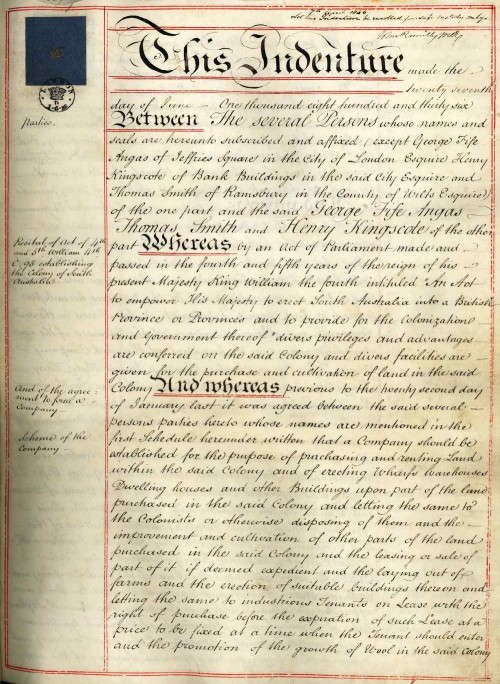 7th April 1840
Let this Indenture be enrolled for safe custody only.
This Indenture made the
Twenty Seventh
day of June One thousand eight hundred and thirty six
Parties.
Between The several Persons whose names and
seals are hereunto subscribed and affixed (except George Fife
Angas of Jeffries Square in the City of London Esquire Henry
Kingscote of Bank Buildings in the said City Esquire and
Thomas Smith of Ramsbury in the County of Wilts Esquire)
of the one part and the said George Fife Angas
Thomas Smith and Henry Kingscote of the other
Recital of Act of 4th
and 5th William 4th
C. 95 establishing
the Colony of South
Australia
part Whereas by an Act of Parliament made and
passed in the fourth and fifth years of the reign of his
present Majesty King William the fourth intituled "An Act
to empower His Majesty to erect South Australia into a British
Province or Provinces and to provide for the Colonization
and Government thereof" divers privileges and advantages
are conferred on the said Colony and divers facilities are
given for the purchase and cultivation of land in the said
And of the agree-
ment to form a
Company
Colony And whereas previous to the twenty second day
of January last it was agreed between the said several
persons parties hereto whose names are mentioned in the
Scheme of the
Company
first Schedule hereunder written that a Company should be
established for the purpose of purchasing and renting Land
within the said Colony and of erecting Wharfs Warehouses
Dwelling houses and other Buildings upon part of the land
purchased in the said Colony and letting the same to
the Colonists or otherwise disposing of them and the
improvement and cultivation of other parts of the land
purchased in the said Colony and the leasing or sale of
part of it if deemed expedient and the laying out of
farms and the erection of suitable buildings thereon and
letting the same to industrious Tenants on Lease with the
right of purchase before the expiration of such Lease at a
price to be fixed at a time when the Tenant should enter
and the promotion of the growth of Wool in the said Colony